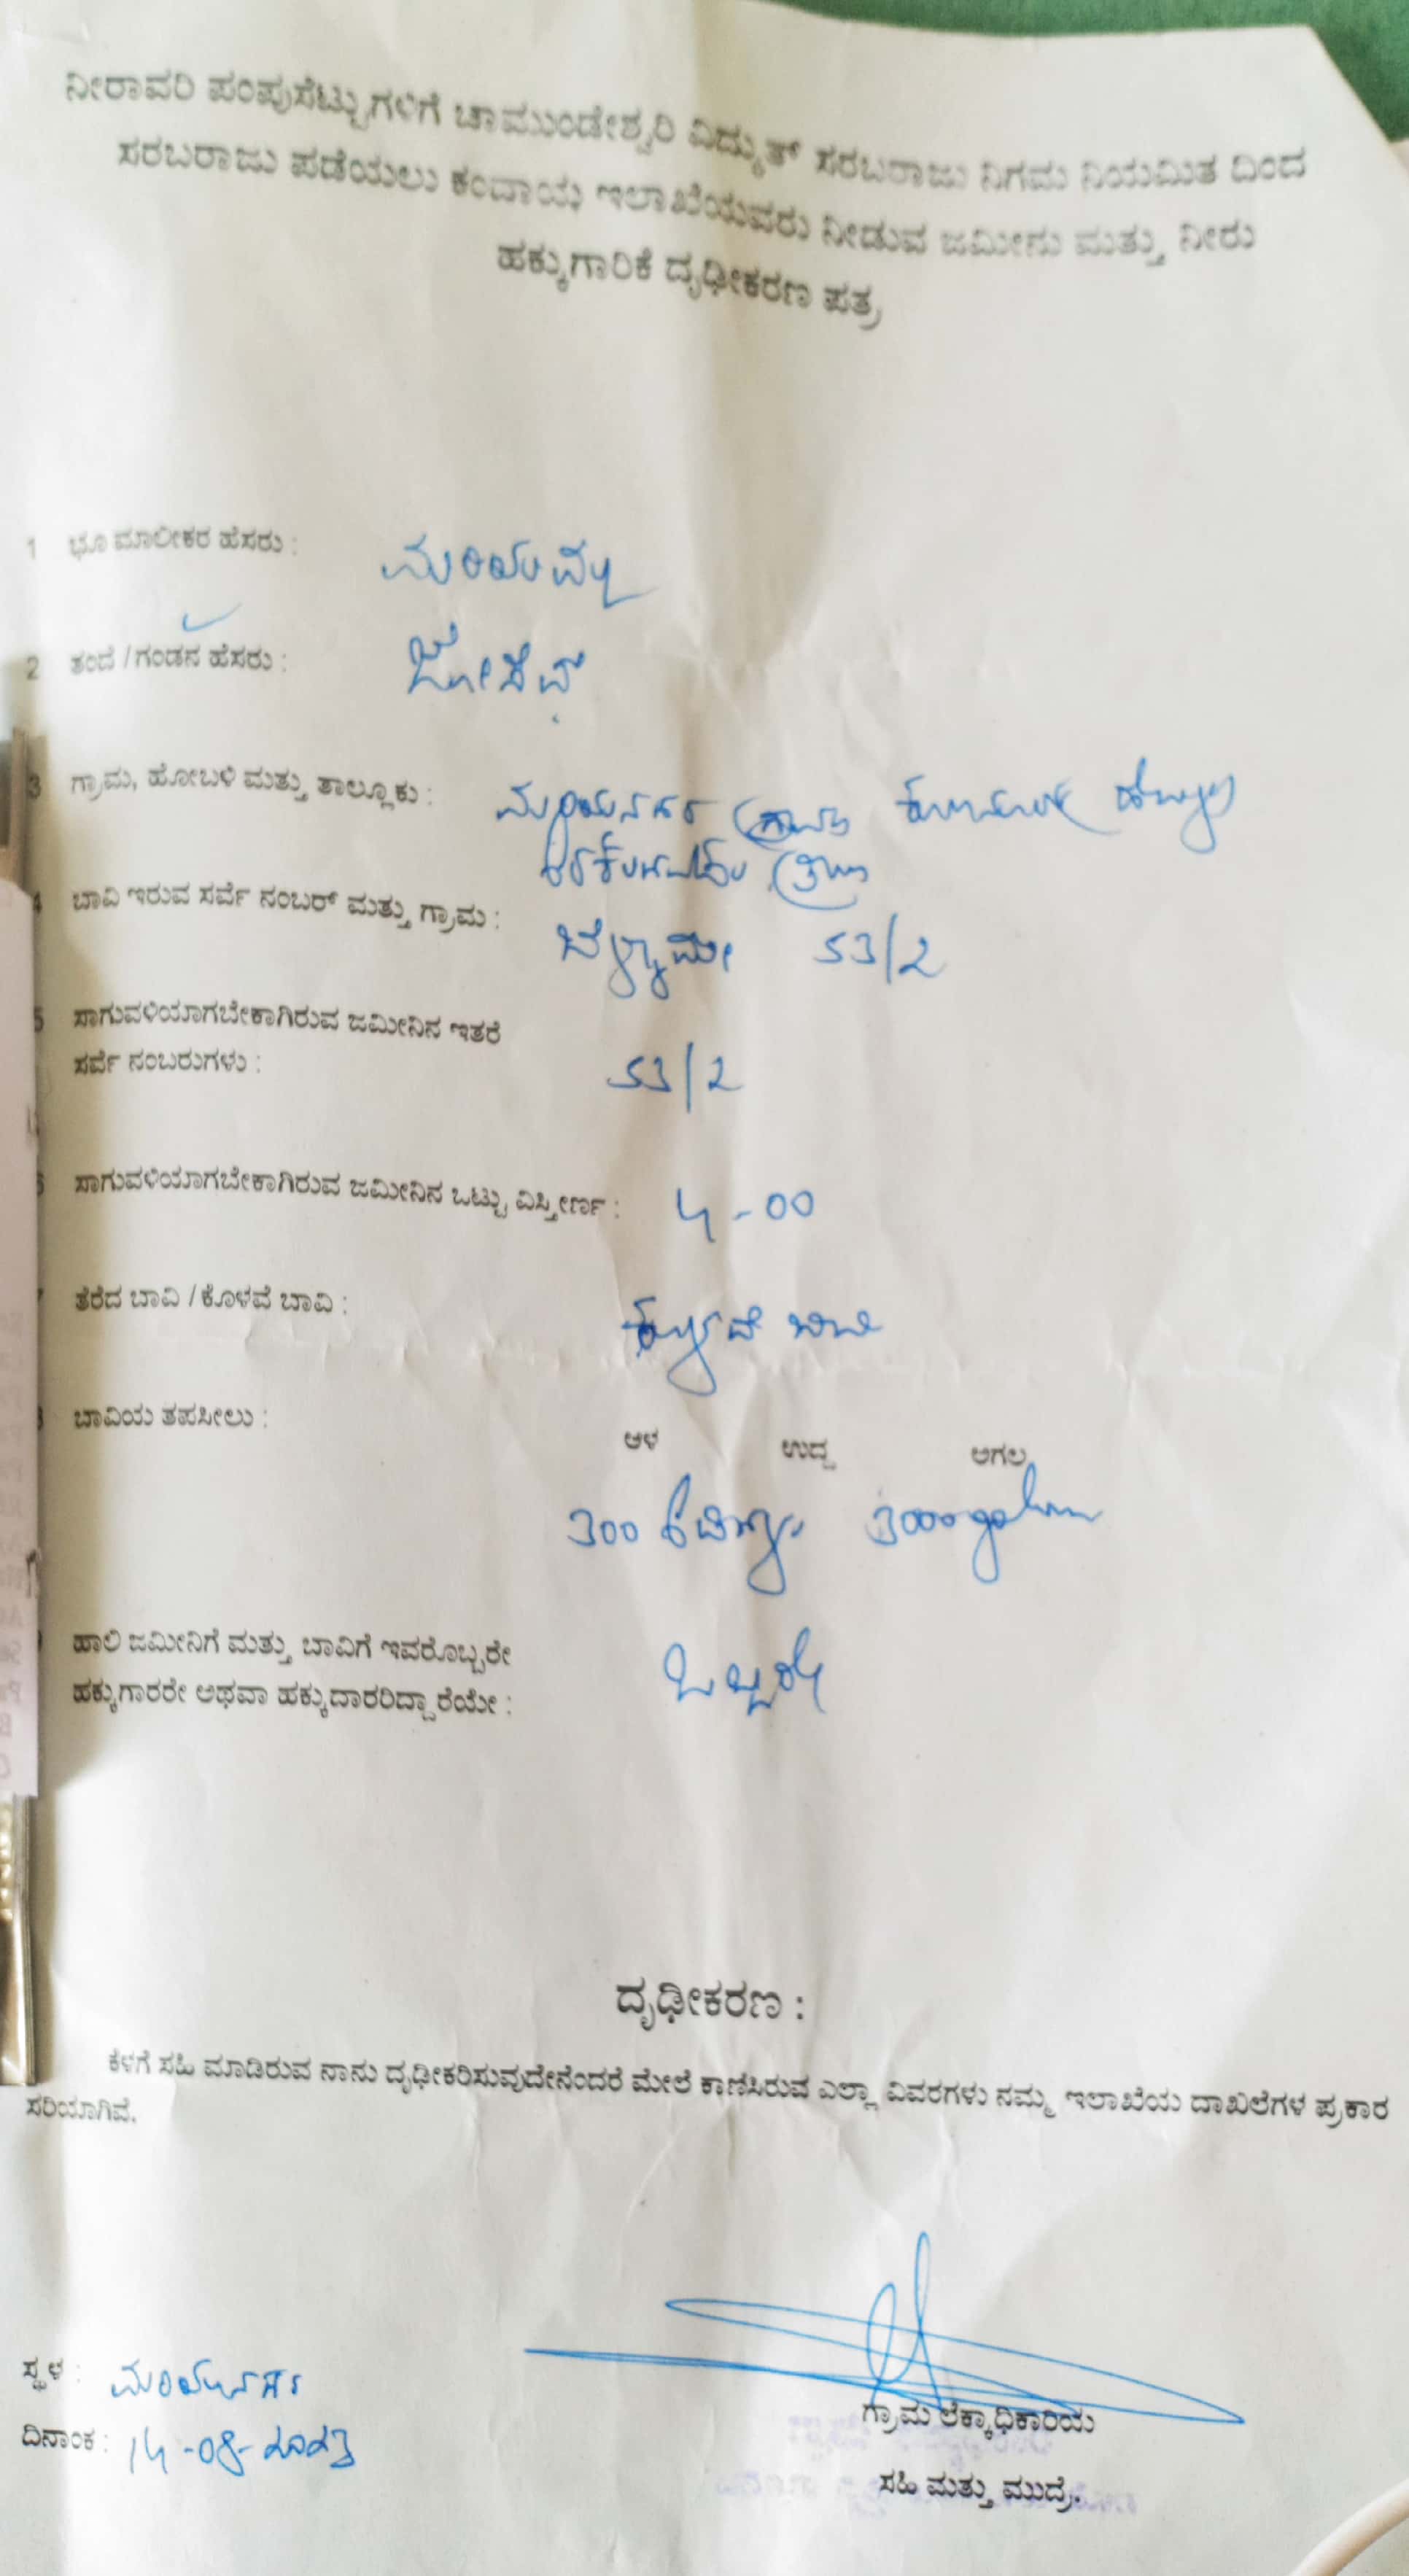 ನೀರಾವರಿ ಪಂಪುಸೆಟ್ಟುಗಳಿಗೆ ಚಾಮುಂಡೇಶ್ವರಿ ವಿದ್ಯುತ್ ಸರಬರಾಜು ನಿಗಮ ನಿಯಮಿತ ದಿಂದ
ಸರಬರಾಜು ಪಡೆಯಲು ಕಂದಾಯ ಇಲಾಖೆಯವರು ನೀಡುವ ಜಮೀನು ಮತ್ತು ನೀರು
ಹಕ್ಕುಗಾರಿಕೆ ದೃಢೀಕರಣ ಪತ್ರ
1 ಭೂ ಮಾಲೀಕರ ಹೆಸರು : ಮರಿಯಮ್ಮ
2 ತಂದೆ / ಗಂಡನ ಹೆಸರು : ಜೋಸೆಫ್
3 ಗ್ರಾಮ, ಹೋಬಳಿ ಮತ್ತು ತಾಲ್ಲೂಕು :
4 ಬಾವಿ ಇರುವ ಸರ್ವೆ ನಂಬರ್ ಮತ್ತು ಗ್ರಾಮ : 53/2
5 ಸಾಗುವಳಿಯಾಗಬೇಕಾಗಿರುವ ಜಮೀನಿನ ಇತರೆ
ಸರ್ವೆ ನಂಬರುಗಳು : 53/2
6 ಸಾಗುವಳಿಯಾಗಬೇಕಾಗಿರುವ ಜಮೀನಿನ ಒಟ್ಟು ವಿಸ್ತೀರ್ಣ : 4-00
ತೆರೆದ ಬಾವಿ / ಕೊಳವೆ ಬಾವಿ : ಕೊಳವೆ ಬಾವಿ
ಬಾವಿಯ ತಪಸೀಲು :
ಆಳ ಉದ್ದ ಅಗಲ
300 3000
ಹಾಲಿ ಜಮೀನಿಗೆ ಮತ್ತು ಬಾವಿಗೆ ಇವರೊಬ್ಬರೇ
ಹಕ್ಕುಗಾರರೇ ಅಥವಾ ಹಕ್ಕುದಾರರಿದ್ದಾರೆಯೇ : ಒಬ್ಬರೇ
ದೃಢೀಕರಣ :
ಕೆಳಗೆ ಸಹಿ ಮಾಡಿರುವ ನಾನು ದೃಢೀಕರಿಸುವುದೇನೆಂದರೆ ಮೇಲೆ ಕಾಣಿಸಿರುವ ಎಲ್ಲಾ ವಿವರಗಳು ನಮ್ಮ ಇಲಾಖೆಯ ದಾಖಲೆಗಳ ಪ್ರಕಾರ
ಸರಿಯಾಗಿವೆ.
ಸ್ಥಳ : ಮರಿಯಾನಗರ
ದಿನಾಂಕ : 14-08-2023
ಗ್ರಾಮ ಲೆಕ್ಕಾಧಿಕಾರಿಯ
ಸಹಿ ಮತ್ತು ಮುದ್ರೆ.